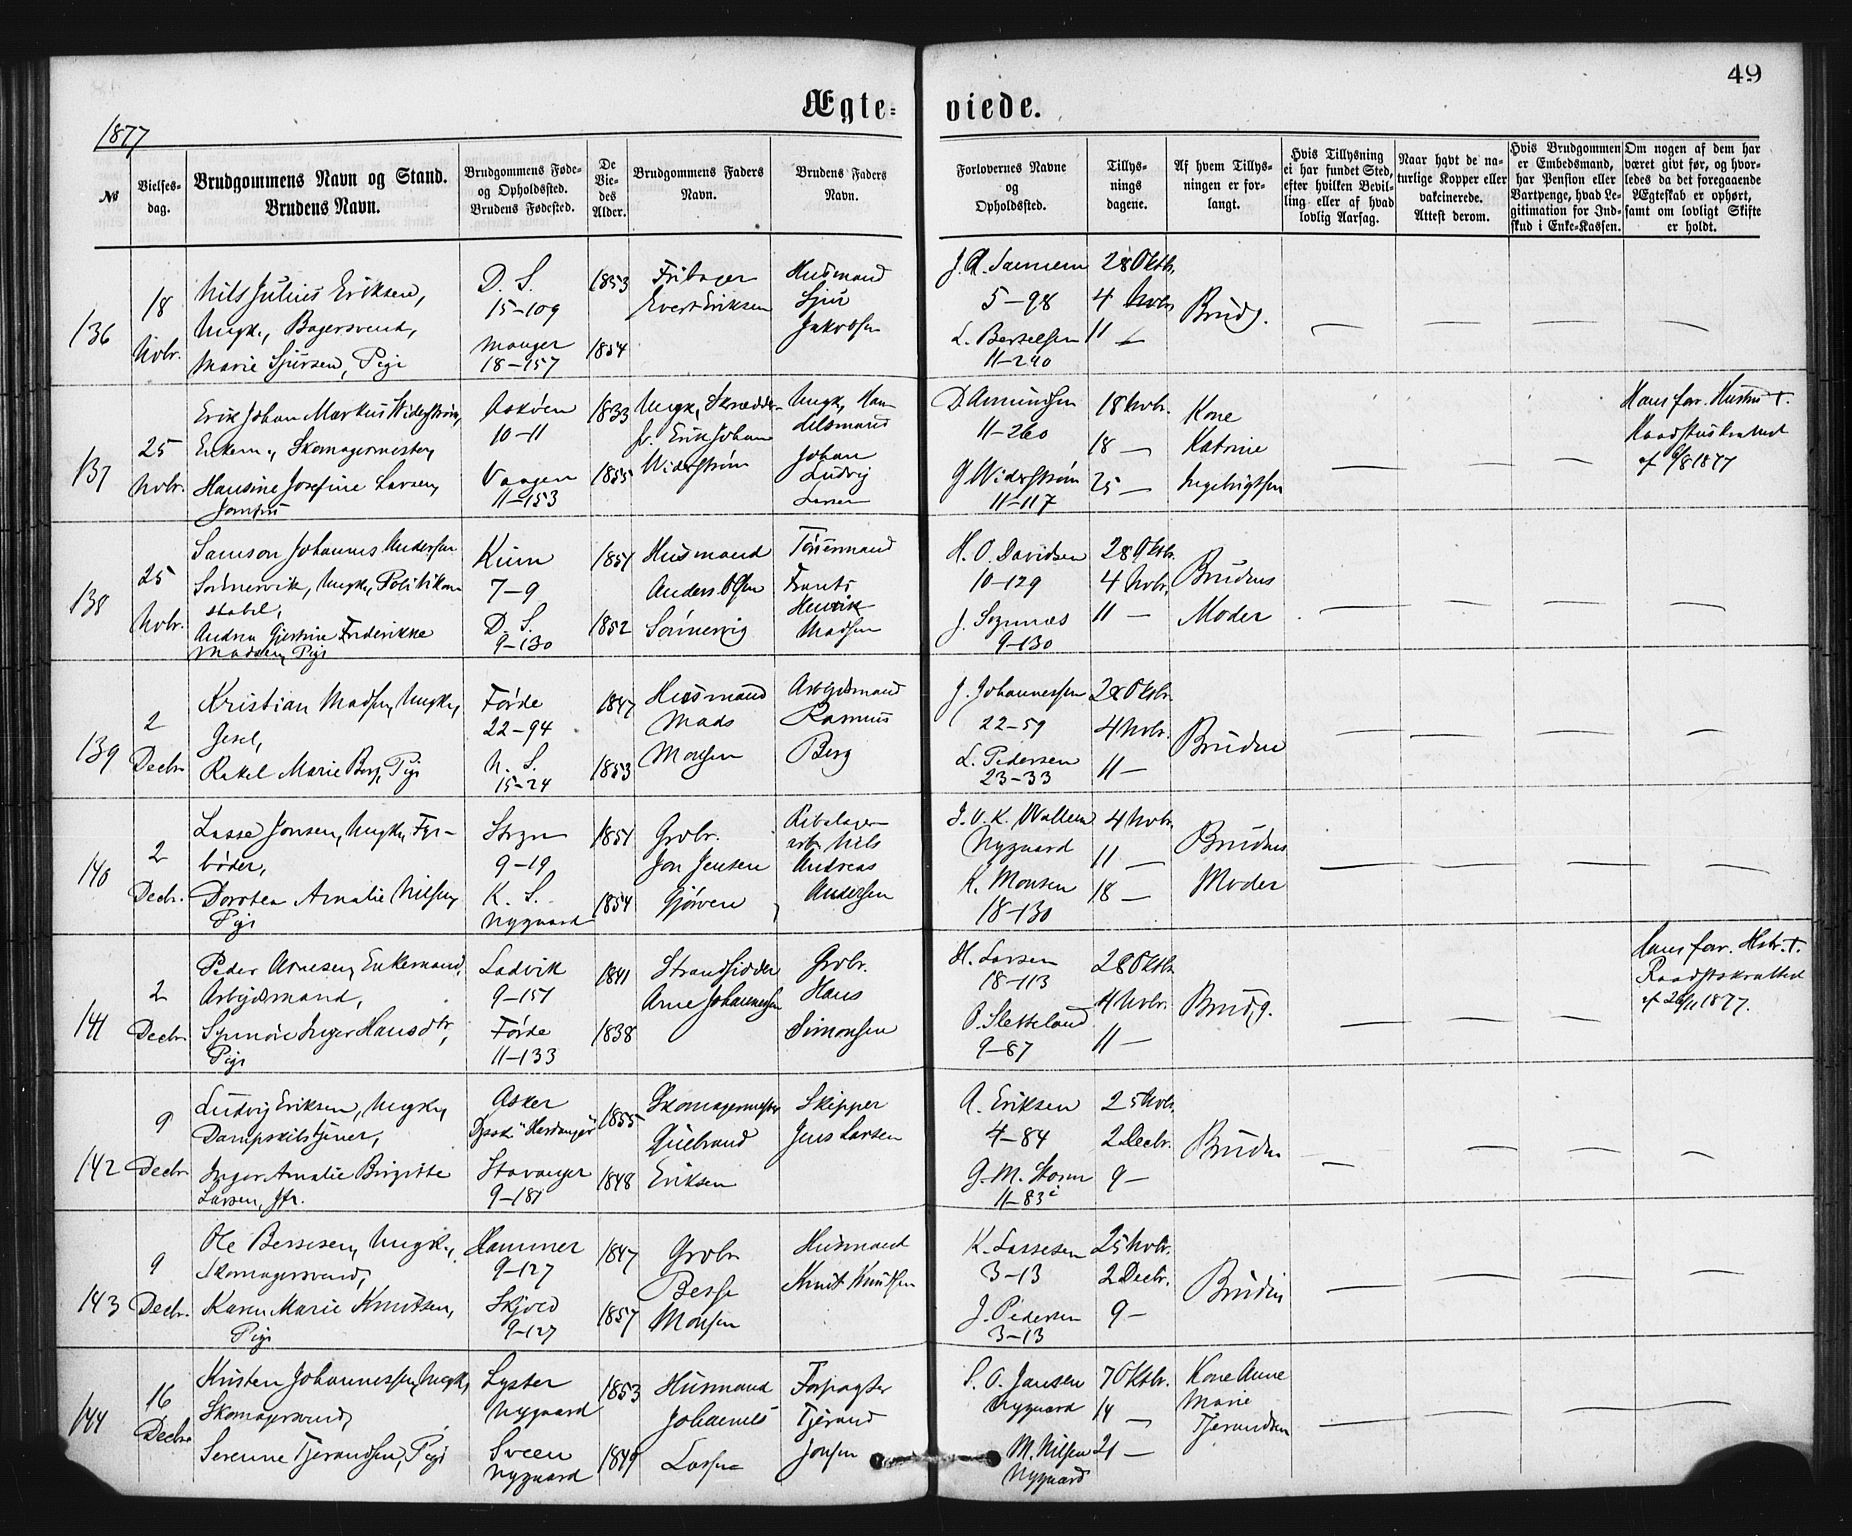 49
Ægte-viede.
1877
№
Vielses-dag.
Brudgommens Navn og Stand.
Brudens Navn.
Brudgommens Føde- og Opholdssted.
Brudens Fødested.
De Viedes Alder.
Brudgommens Faders Navn.
Brudens Faders Navn.
Forlovernes Navne og Opholdssted.
Tillysningsdagene.
Af hvem Tillysningen er forlangt.
Hvis Tillysning ei har fundet Sted, efter hvilken Bevilling eller af hvad lovlig Aarsag.
Naar havt de naturlige Kopper eller vakcinerede. Attest derom.
Hvis Brudgommen er Embedsmand, har Pension eller Vartpenge, hvad Legitimation for Indskud i Enke-Kassen.
Om nogen af dem har været givt før, og hvorledes da det foregaaende Ægteskab er ophørt, samt om lovligt Skifte er holdt.
136
18 Novbr.
Nils Julius Eriksen,
Ungk., Bagersvend,
Marie Sjursen, Pige
D. S.
15-109
Manger
18-157
1853
1854
Evert Eriksen
Husmand
Sjur
Jakobsen
5-98
L. Bertelsen
11-240
28 Oktb.
4 Novbr
11 -
Brudg.
137
25 Novbr.
Erik Johan Markus Widerstrøm,
Enkem., Skomagermester,
Hansine Josefine Larsen,
Jomfru
Askøen
10-11
Vaagen
11-153
1833
1855
Ungk, Skrædder-
sv. Erik Johan
Widerstrøm
Ungk, Han-
delsmand
Johan
Ludvig
Larsen
D. Amundsen
11-260
G. Widerstrøm
11-117
18 Novbr.
18 -
25 -
Kone
Katrine
Ingebrigtsen
Hans for. Hustru †.
Raadstuskrallest
138
25 Novbr.
Samson Johannes Andersen
Sørnervik, Ungk, Politikon-
stabel,
Andrea Gjertine Frederikke
Madsen, Pige
Kinn
7-9
D. S.
9-130
1851
1852
Husmand
Anders Olsen
Sørnevig
Tøsermand
Frants
Henrik
Madsen
H. O. Davidsen
10-129
J. Sognnæs
9-130
28 Oktb.
4 Novbr.
11 -
Brudens
Moder
139
2 Decbr.
Kristian Madsen, Ungk,
Gesel,
Rakel Marie Berg, Pige
Førde
22-94
N. S.
15-24
1847
1853
Husmand
Mads
Monsen
Arbeidsmand
Rasmus
Berg
J. Johannessen
22-59
L. Pedersen
23-33
28 Oktbr.
4 Novbr.
11 -
Bruden
140
2 Decbr.
Lasse Jonsen, Ungk, Fyr-
bøder,
Dorotea Amalie Nilsen,
Pige
9-19
K. S.
Nygaard
1851
1854
Grdbr.
Jon Jensen
Gjørven
Nils
Andreas
Andersen
Nygaard
K. Monsen
18-130
4 Novbr.
11 -
18 -
Brudens
Moder
141
2 Decbr
Peder Arnesen, Enkemand,
Arbeidsmand,
Synnøve Inger Hansdtr,
Pige
Ladvik
9-151
Førde
11-133
1841
1838
Strandsidder
Arne Johannessen
Grdbr.
Hans
Simonsen
H. Larsen
18-113
O. Sletteland
9-87
28 Oktb.
4 Novbr.
11 -
Brudg.
Hans for. Hstr. †.
Raadstskrallest
af 26/11 1877.
142
9 Decbr
Ludvig Eriksen, Ungk,
Dampskibstjener,
Inger Amalie Birgitte
Larsen, Jfr.
Asker
Dpsk. "Hardanger"
Stavanger
9-181
1855
1848
Skomagermester
Gulbrand
Eriksen
Skipper
Jens Larsen
A. Eriksen
4-84
G. M. Storm
11-83
25 Novb.
2 Decbr.
9 -
Bruden
143
9 Decbr.
Ole Bessesen, Ungk.,
Skomagersvend,
Karen Marie Knutsen,
Pige
Hammer
9-127
Skjold
9-127
1847
1857
Grdbr
Besse
Monsen
Husmand
Knut Knutsen
K. Lassesen
3-13
J. Pedersen
3-13
25 Novbr.
2 Decbr.
9 -
Bruden
144
16 Decbr
Kristen Johannessen, Ungk,
Skomagersvend,
Serenne Tjerandsen, Pige
Lyster
Nygaard
Sveen
Nygaard
1853
1849
Husmand
Johannes
Lassen
Forpagter
Tjerand
Jonsen
S. O. Jansen
Nygaard
M. Nilsen
Nygaard
7 Oktbr.
14 -
21 -
Kone Anne
Marie
Tjerandsen